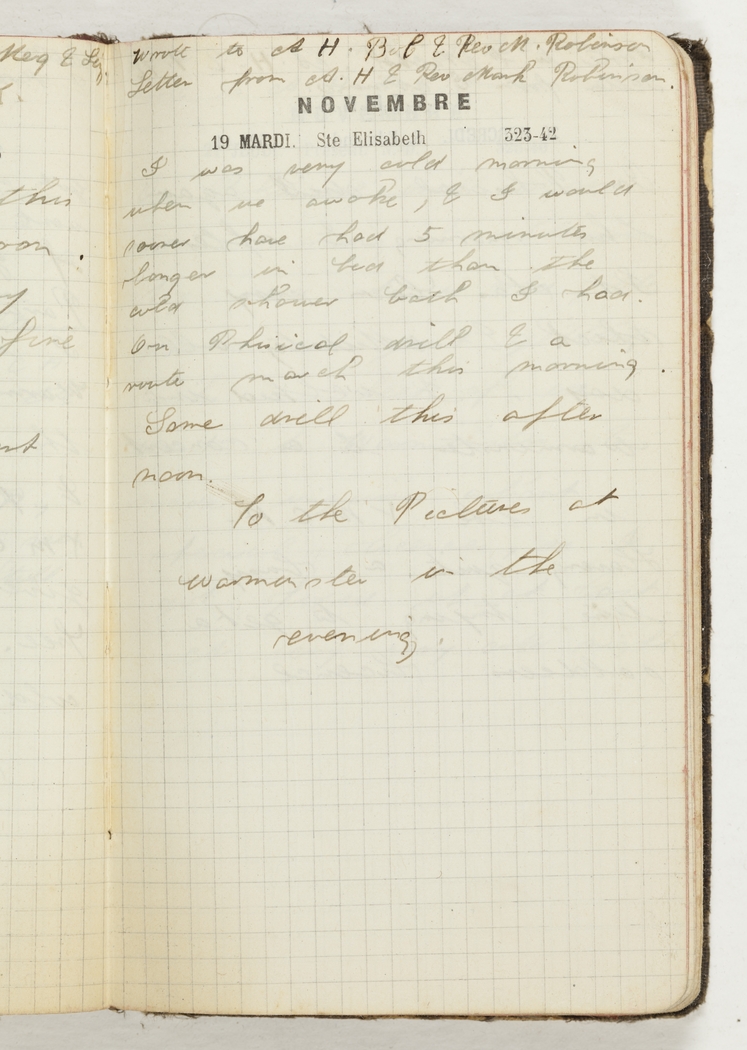 Meg &
Wrote to A H. Bob & Rev M. Robinson
Letter from A. H & Rev Mark Robinson.
NOVEMBRE
19 MARDI. Ste Elisabeth 323-42
I was very cold morning
when we awoke, & I would
sooner have had 5 minutes
longer in bed than the
cold shower bath I had.
On Phisical drill & a
route march this morning.
Some drill this after
noon.
To the Pictures at
Warminster in the
evening.
this